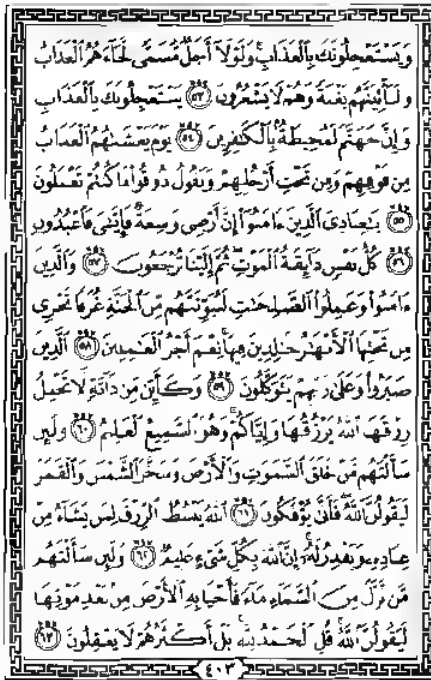 وَيَسْتَعْجِلُونَكَ بِالْعَذَابِ وَلَوْلَا أَجَلٌ مُّسَمًّى لَّجَاءَهُمُ الْعَذَابُ
وَلَيَأْتِيَنَّهُم بَغْتَةً وَهُمْ لَا يَشْعُرُونَ ٥٣ يَسْتَعْجِلُونَكَ بِالْعَذَابِ
وَإِنَّ جَهَنَّمَ لَمُحِيطَةٌ بِالْكَافِرِينَ ٥٤ يَوْمَ يَغْشَاهُمُ الْعَذَابُ
مِن فَوْقِهِمْ وَمِن تَحْتِ أَرْجُلِهِمْ وَيَقُولُ ذُوقُوا مَا كُنتُمْ تَعْمَلُونَ
٥٥ يَاعِبَادِيَ الَّذِينَ ءَامَنُوا إِنَّ أَرْضِي وَاسِعَةٌ فَإِيَّايَ فَاعْبُدُونِ
٥٦ كُلُّ نَفْسٍ ذَائِقَةُ الْمَوْتِ ثُمَّ إِلَيْنَا تُرْجَعُونَ ٥٧ وَالَّذِينَ
ءَامَنُوا وَعَمِلُوا الصَّالِحَاتِ لَنُبَوِّئَنَّهُم مِّنَ الْجَنَّةِ غُرَفًا تَجْرِي
مِن تَحْتِهَا الْأَنْهَارُ خَالِدِينَ فِيهَا نِعْمَ أَجْرُ الْعَامِلِينَ ٥٨ الَّذِينَ
صَبَرُوا وَعَلَى رَبِّهِمْ يَتَوَكَّلُونَ ٥٩ وَكَأَيِّن مِّن دَابَّةٍ لَّا تَحْمِلُ
رِزْقَهَا اللَّهُ يَرْزُقُهَا وَإِيَّاكُمْ وَهُوَ السَّمِيعُ الْعَلِيمُ ٦٠ وَلَئِن
سَأَلْتَهُم مَّنْ خَلَقَ السَّمَاوَاتِ وَالْأَرْضَ وَسَخَّرَ الشَّمْسَ وَالْقَمَرَ
لَيَقُولُنَّ اللَّهُ فَأَنَّى يُؤْفَكُونَ ٦١ اللَّهُ يَبْسُطُ الرِّزْقَ لِمَن يَشَاءُ مِنْ
عِبَادِهِ وَيَقْدِرُ لَهُ إِنَّ اللَّهَ بِكُلِّ شَيْءٍ عَلِيمٌ ٦٢ وَلَئِن سَأَلْتَهُم
مَّن نَّزَّلَ مِنَ السَّمَاءِ مَاءً فَأَحْيَا بِهِ الْأَرْضَ مِن بَعْدِ مَوْتِهَا
لَيَقُولُنَّ اللَّهُ قُلِ الْحَمْدُ لِلَّهِ بَلْ أَكْثَرُهُمْ لَا يَعْقِلُونَ ٦٣
٤٠٣